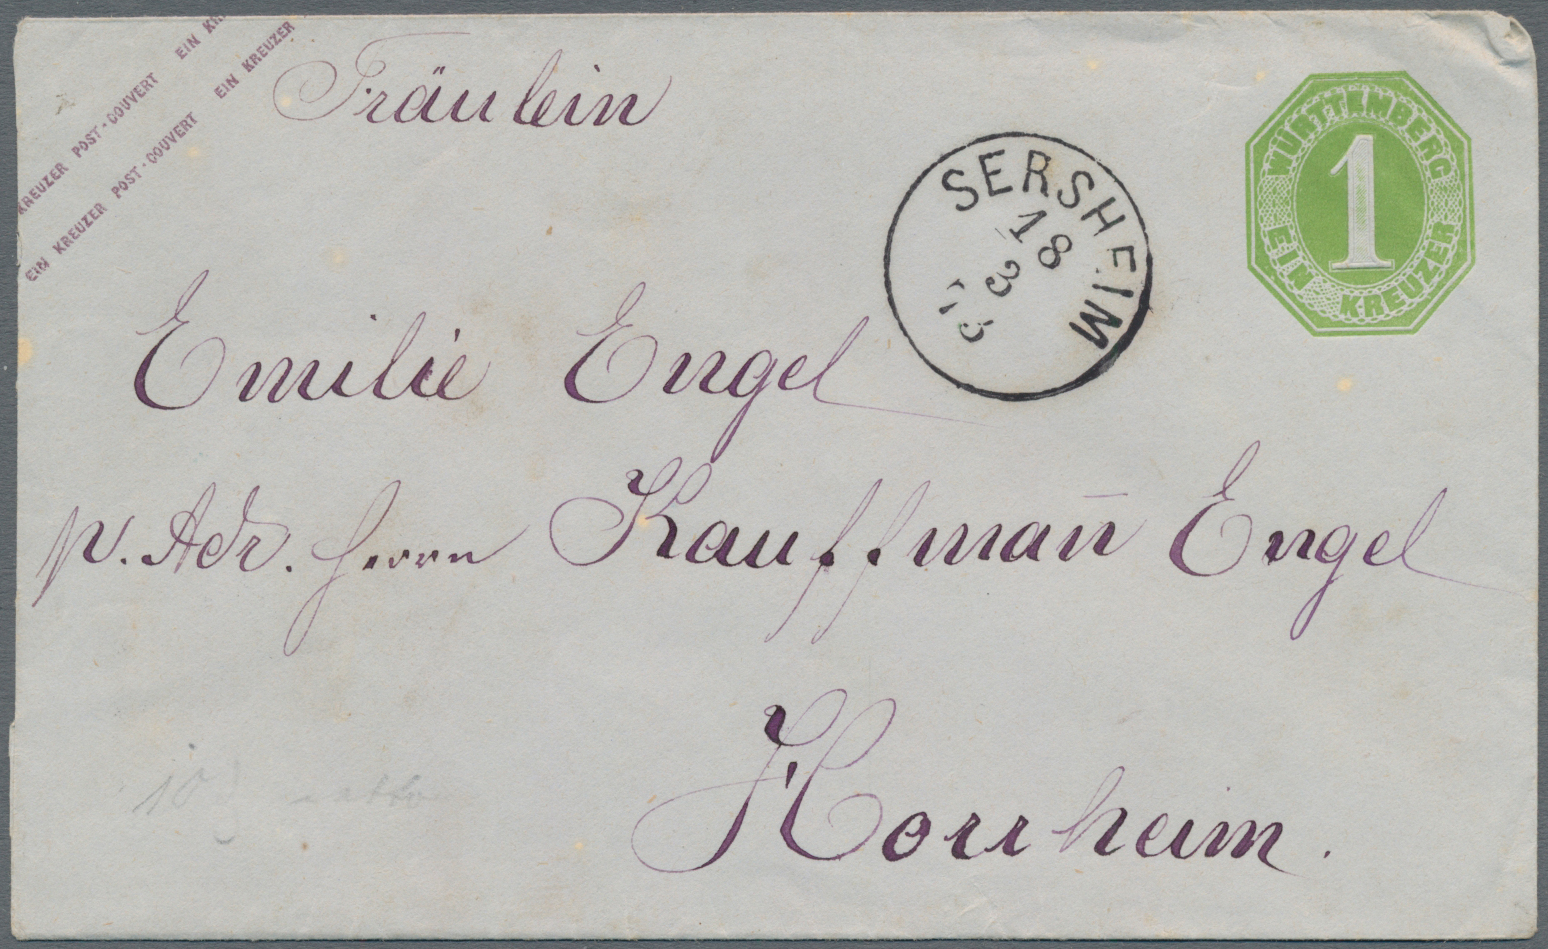 EIN KR
KREUZER POST-COUVERT
EIN KREUZER POST-COUVERT EIN KREUZER
Fräulein
WÜRTTEMBERG
1
EIN KREUZER
SERSHEIM
18
3
Emilie Engel
p. Adr. Herrn Kauffman̄ Engel
Horrheim.